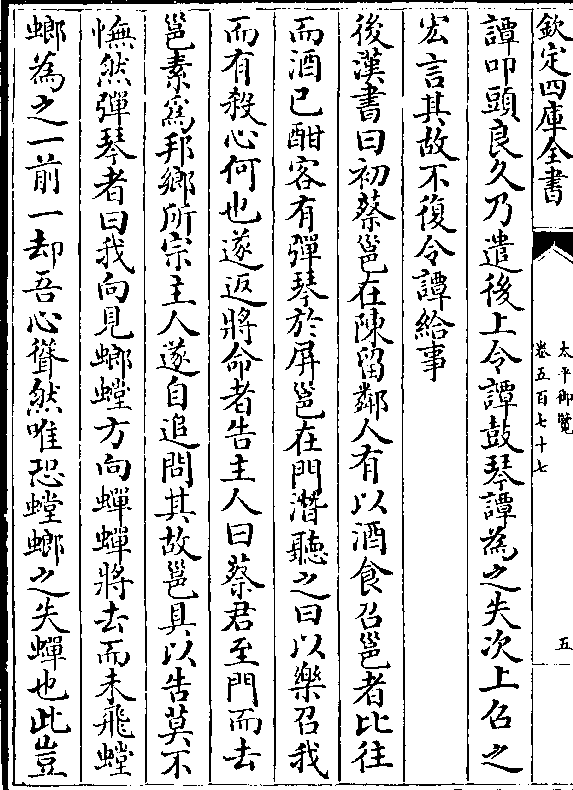 欽定四庫全書
太平御覽
卷五百七十七
五
譚叩頭良久乃遣後上令譚鼓琴譚為之失次上召之
宏言其故不復令譚給事
後漢書曰初蔡邕在陳留鄰人有以酒食召邕者比往
而酒已酣客有彈琴於屏邕在門潛聽之曰以樂召我
而有殺心何也遂返將命者告主人曰蔡君至門而去
邕素為邦鄉所宗主人遂自追問其故邕具以告莫不
憮然彈琴者曰我向見螂螳方向蟬蟬將去而未飛螳
螂為之一前一却吾心聳然唯恐螳螂之失蟬也此豈